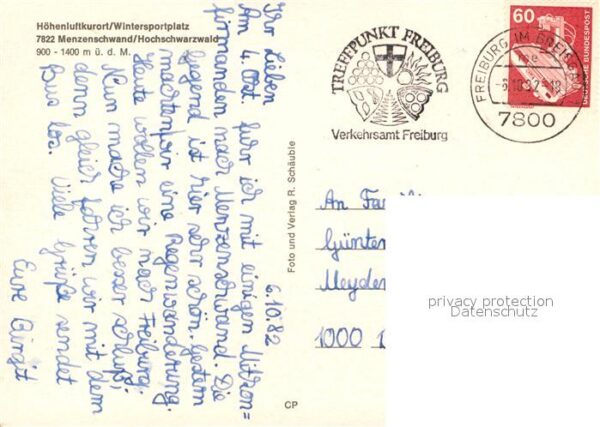 Höhenluftkurort/Wintersportplatz
7822 Menzenschwand/Hochschwarzwald
900 - 1400 m ü. d. M.
6.10.82
Ihr Lieben
Am 4. Okt. fuhr ich mit einigen Mitkon=
firmanden nach Menzenschwand. Die
Gegend ist hier sehr schön. Gestern
machten wir eine Regenwanderung.
Heute wollen wir nach Freiburg.
Nun mache ich besser Schluß,
denn gleich fahren wir mit dem
Bus los. Viele Grüße sendet
Eure Birgit
Foto und Verlag R. Schäuble
CP
TREFFPUNKT FREIBURG
Verkehrsamt Freiburg
FREIBURG IM BREISGAU
-6.10.82-18
7800
60
DEUTSCHE BUNDESPOST
An Fami
Günter
Meyden
1000
privacy protection
Datenschutz